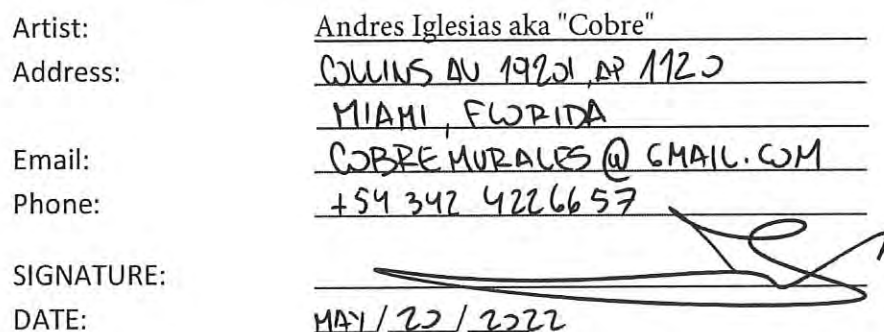 Artist: Andres Iglesias aka "Cobre"
Address: COLLINS AV 19201, AP 1120
MIAMI, FLORIDA
Email: COBREMURALES@GMAIL.COM
Phone: +54 342 4226657
SIGNATURE:
DATE: MAY/20/2022